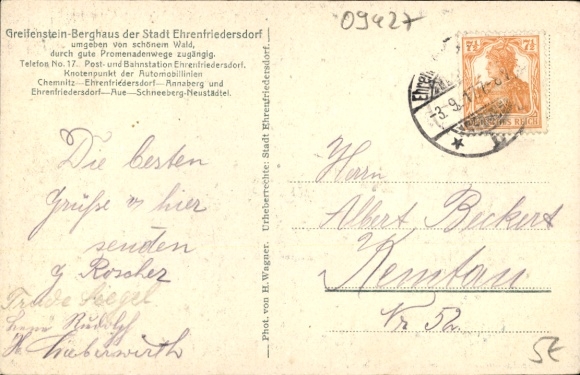 09427
Greifenstein-Berghaus der Stadt Ehrenfriedersdorf
umgeben von schönem Wald,
durch gute Promenadenwege zugängig.
Telefon No. 17. Post- und Bahnstation Ehrenfriedersdorf.
Knotenpunkt der Automobillinien
Chemnitz—Ehrenfriedersdorf—Annaberg und
Ehrenfriedersdorf—Aue—Schneeberg-Neustädtel.
Die besten
Grüße v hier
senden
Roscher
Siegel
Rudolf
Lieberwirth
Phot. von H. Wagner. Urheberrechte: Stadt Ehrenfriedersdorf.
7½ 7½
REICH
Herrn
Albert Beckert
Kemtau
Nr 52.
5€